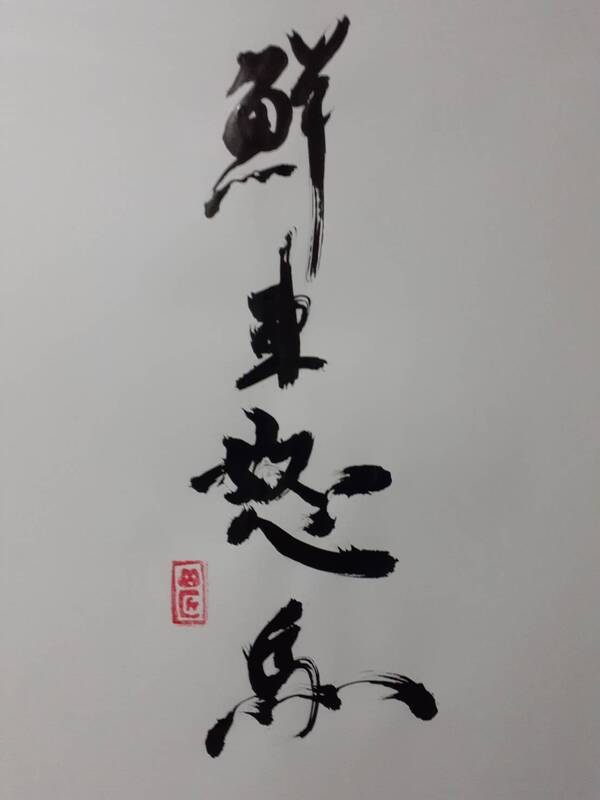 鮮車怒馬